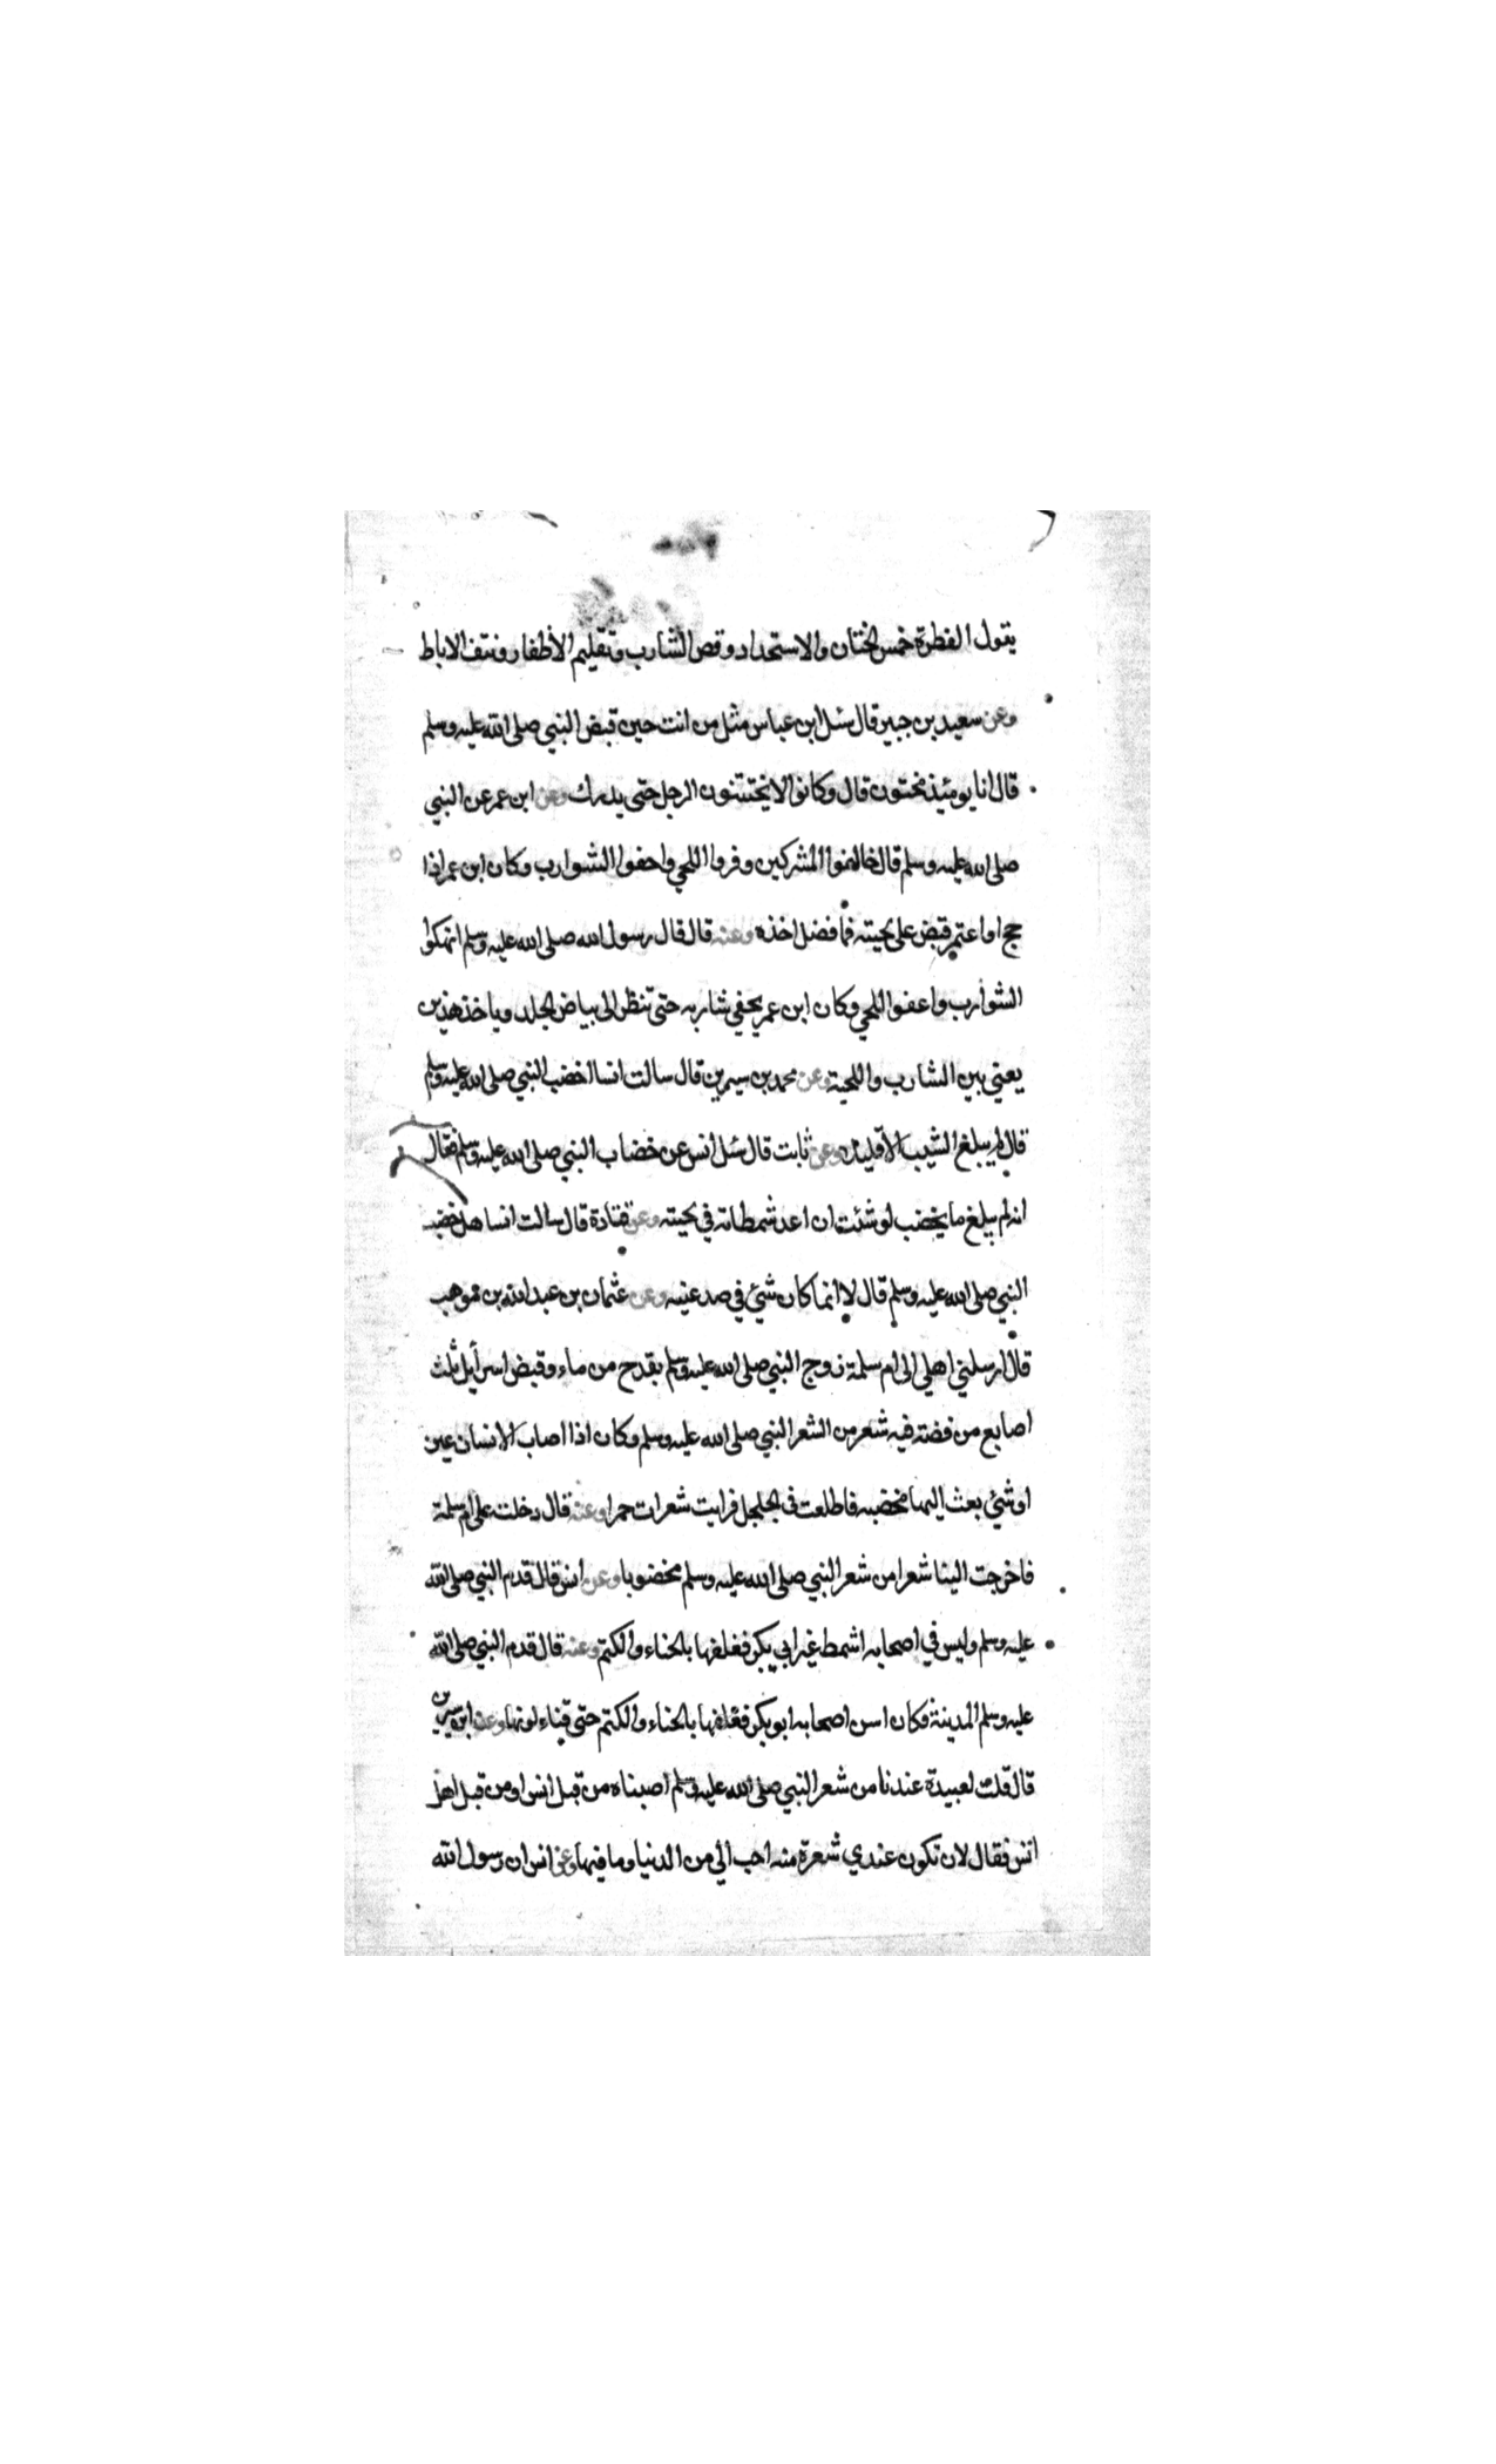 يقول الفطرة خمس الختان والاستحداد وقص الشارب وتقليم الأظفار ونتف الاباط
وعن سعيد بن جبير قال سئل ابن عباس مثل من انت حين قبض النبي صلى الله عليه وسلم
قال انا يومئذ مختون قال وكانوا لا يختتنون الرجل حتى يدرك وعن ابن عمر عن النبي
صلى الله عليه وسلم قال خالفوا المشركين وفروا اللحي واحفوا الشوارب وكان ابن عمر اذا
حج او اعتمر قبض على لحيته فما فضل اخذه وعنه قال قال رسول الله صلى الله عليه وسلم انهكوا
الشوارب واعفوا اللحي وكان ابن عمر يحفي شاربه حتى تنظر الى بياض الجلد وياخذ هذين
يعني بين الشارب واللحية وعن محمد بن سيرين قال سالت انسا اخضب النبي صلى الله عليه وسلم
قال لم يبلغ الشيب الا قليلا وعن ثابت قال سئل انس عن خضاب النبي صلى الله عليه وسلم فقال
انه لم يبلغ ما يخضب لو شئت ان اعد شمطاته في لحيته وعن قتادة قال سالت انسا هل خضب
النبي صلى الله عليه وسلم قال لا انما كان شئ في صدغيه وعن عثمان بن عبد الله بن موهب
قال ارسلني اهلي الى ام سلمة زوج النبي صلى الله عليه وسلم بقدح من ماء وقبض اسرائيل ثلث
اصابع من فضة فيه شعر من الشعر النبي صلى الله عليه وسلم وكان اذا اصاب الانسان عين
او شئ بعث اليها مخضبه فاطلعت في الجلجل فرايت شعرات حمرا وعنه قال دخلت على ام سلمة
فاخرجت الينا شعرا من شعر النبي صلى الله عليه وسلم مخضوبا وعن انس قال قدم النبي صلى الله
عليه وسلم وليس في اصحابه اشمط غير ابي بكر فغلفها بالحناء والكتم وعنه قال قدم النبي صلى الله
عليه وسلم المدينة فكان اسن اصحابه ابو بكر فغلفها بالحناء والكتم حتى قناء لونها وعن ابن سيرين
قال قلت لعبيدة عندنا من شعر النبي صلى الله عليه وسلم اصبناه من قبل انس او من قبل اهل
انس فقال لان تكون عندي شعرة منه احب الي من الدنيا وما فيها وعن انس ان رسول الله